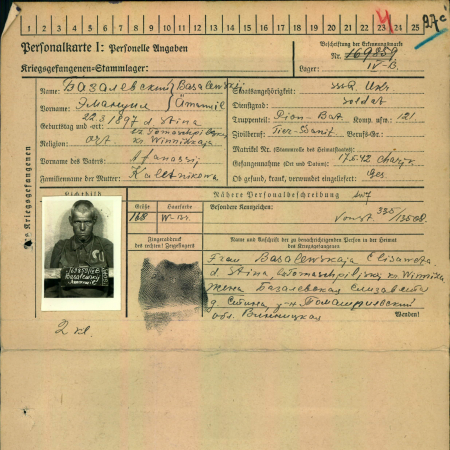 1 2 3 4 5 6 7 8 9 10 11 12 13 14 15 16 17 18 19 20 21 22 23 24 25
4
Personalkarte I: Personelle Angaben
Kriegsgefangenen-Stammlager:
Beschriftung der Erkennungsmarke
Nr. 169859
Lager: IV-B.
Name: Базалевский Basalewskij
Vorname: Эмануил
Geburtstag und -ort: 22.3.1897 d Stina
Religion: ort.
Winnizkaja
Vorname des Vaters: Afanassij
Familienname der Mutter: Kaletnikowa
Staatsangehörigkeit: Ukr
Dienstgrad: Soldat
Truppenteil: Pion-Bat Komp. usw.: 121.
Zivilberuf: Berufs-Gr.:
Matrikel Nr. (Stammrolle des Heimatstaates):
Gefangennahme (Ort und Datum): 17.5.42
Ob gesund, krank, verwundet eingeliefert: ges.
des Kriegsgefangenen
Lichtbild
Nähere Personalbeschreibung
Größe
Haarfarbe
Besondere Kennzeichen:
168
Fingerabdruck
des rechten Zeigefingers
Name und Anschrift der zu benachrichtigenden Person in der Heimat
des Kriegsgefangenen
Frau Basalewskaja Elisaweta
d. Stina Winniza
жена Базалевская Елизавета
д Стина р-н Томашпольский
обл. Винницкая
Wenden!
2 kl.